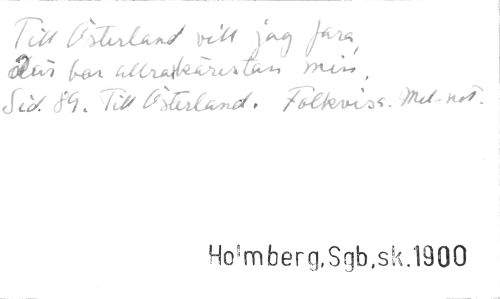 Till Österland vill jag fara,
där bor allrakärestan min,
Sid. 89. Till Österland. Folkvisa. Mel-not.
Holmberg,Sgb,sk.1900